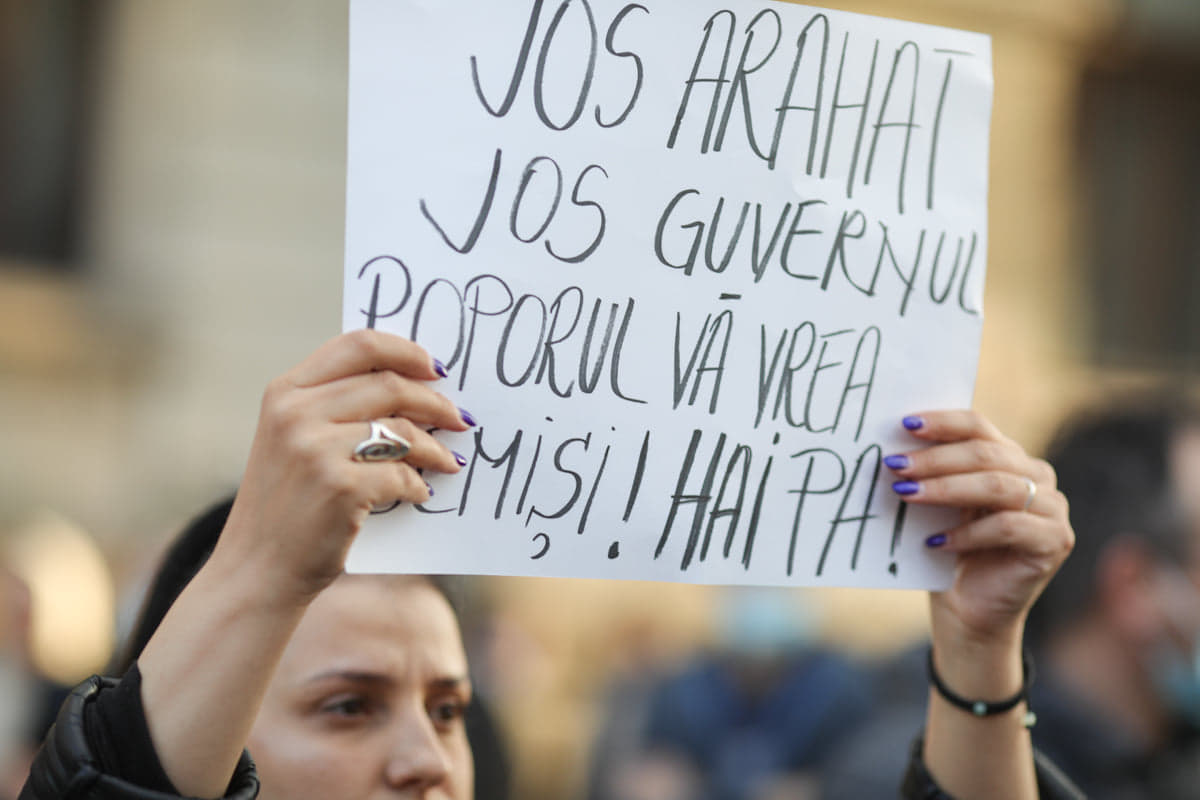 JOS ARAHAT
JOS GUVERNUL
POPORUL VĂ VREA
DEMIȘI! HAI PA!